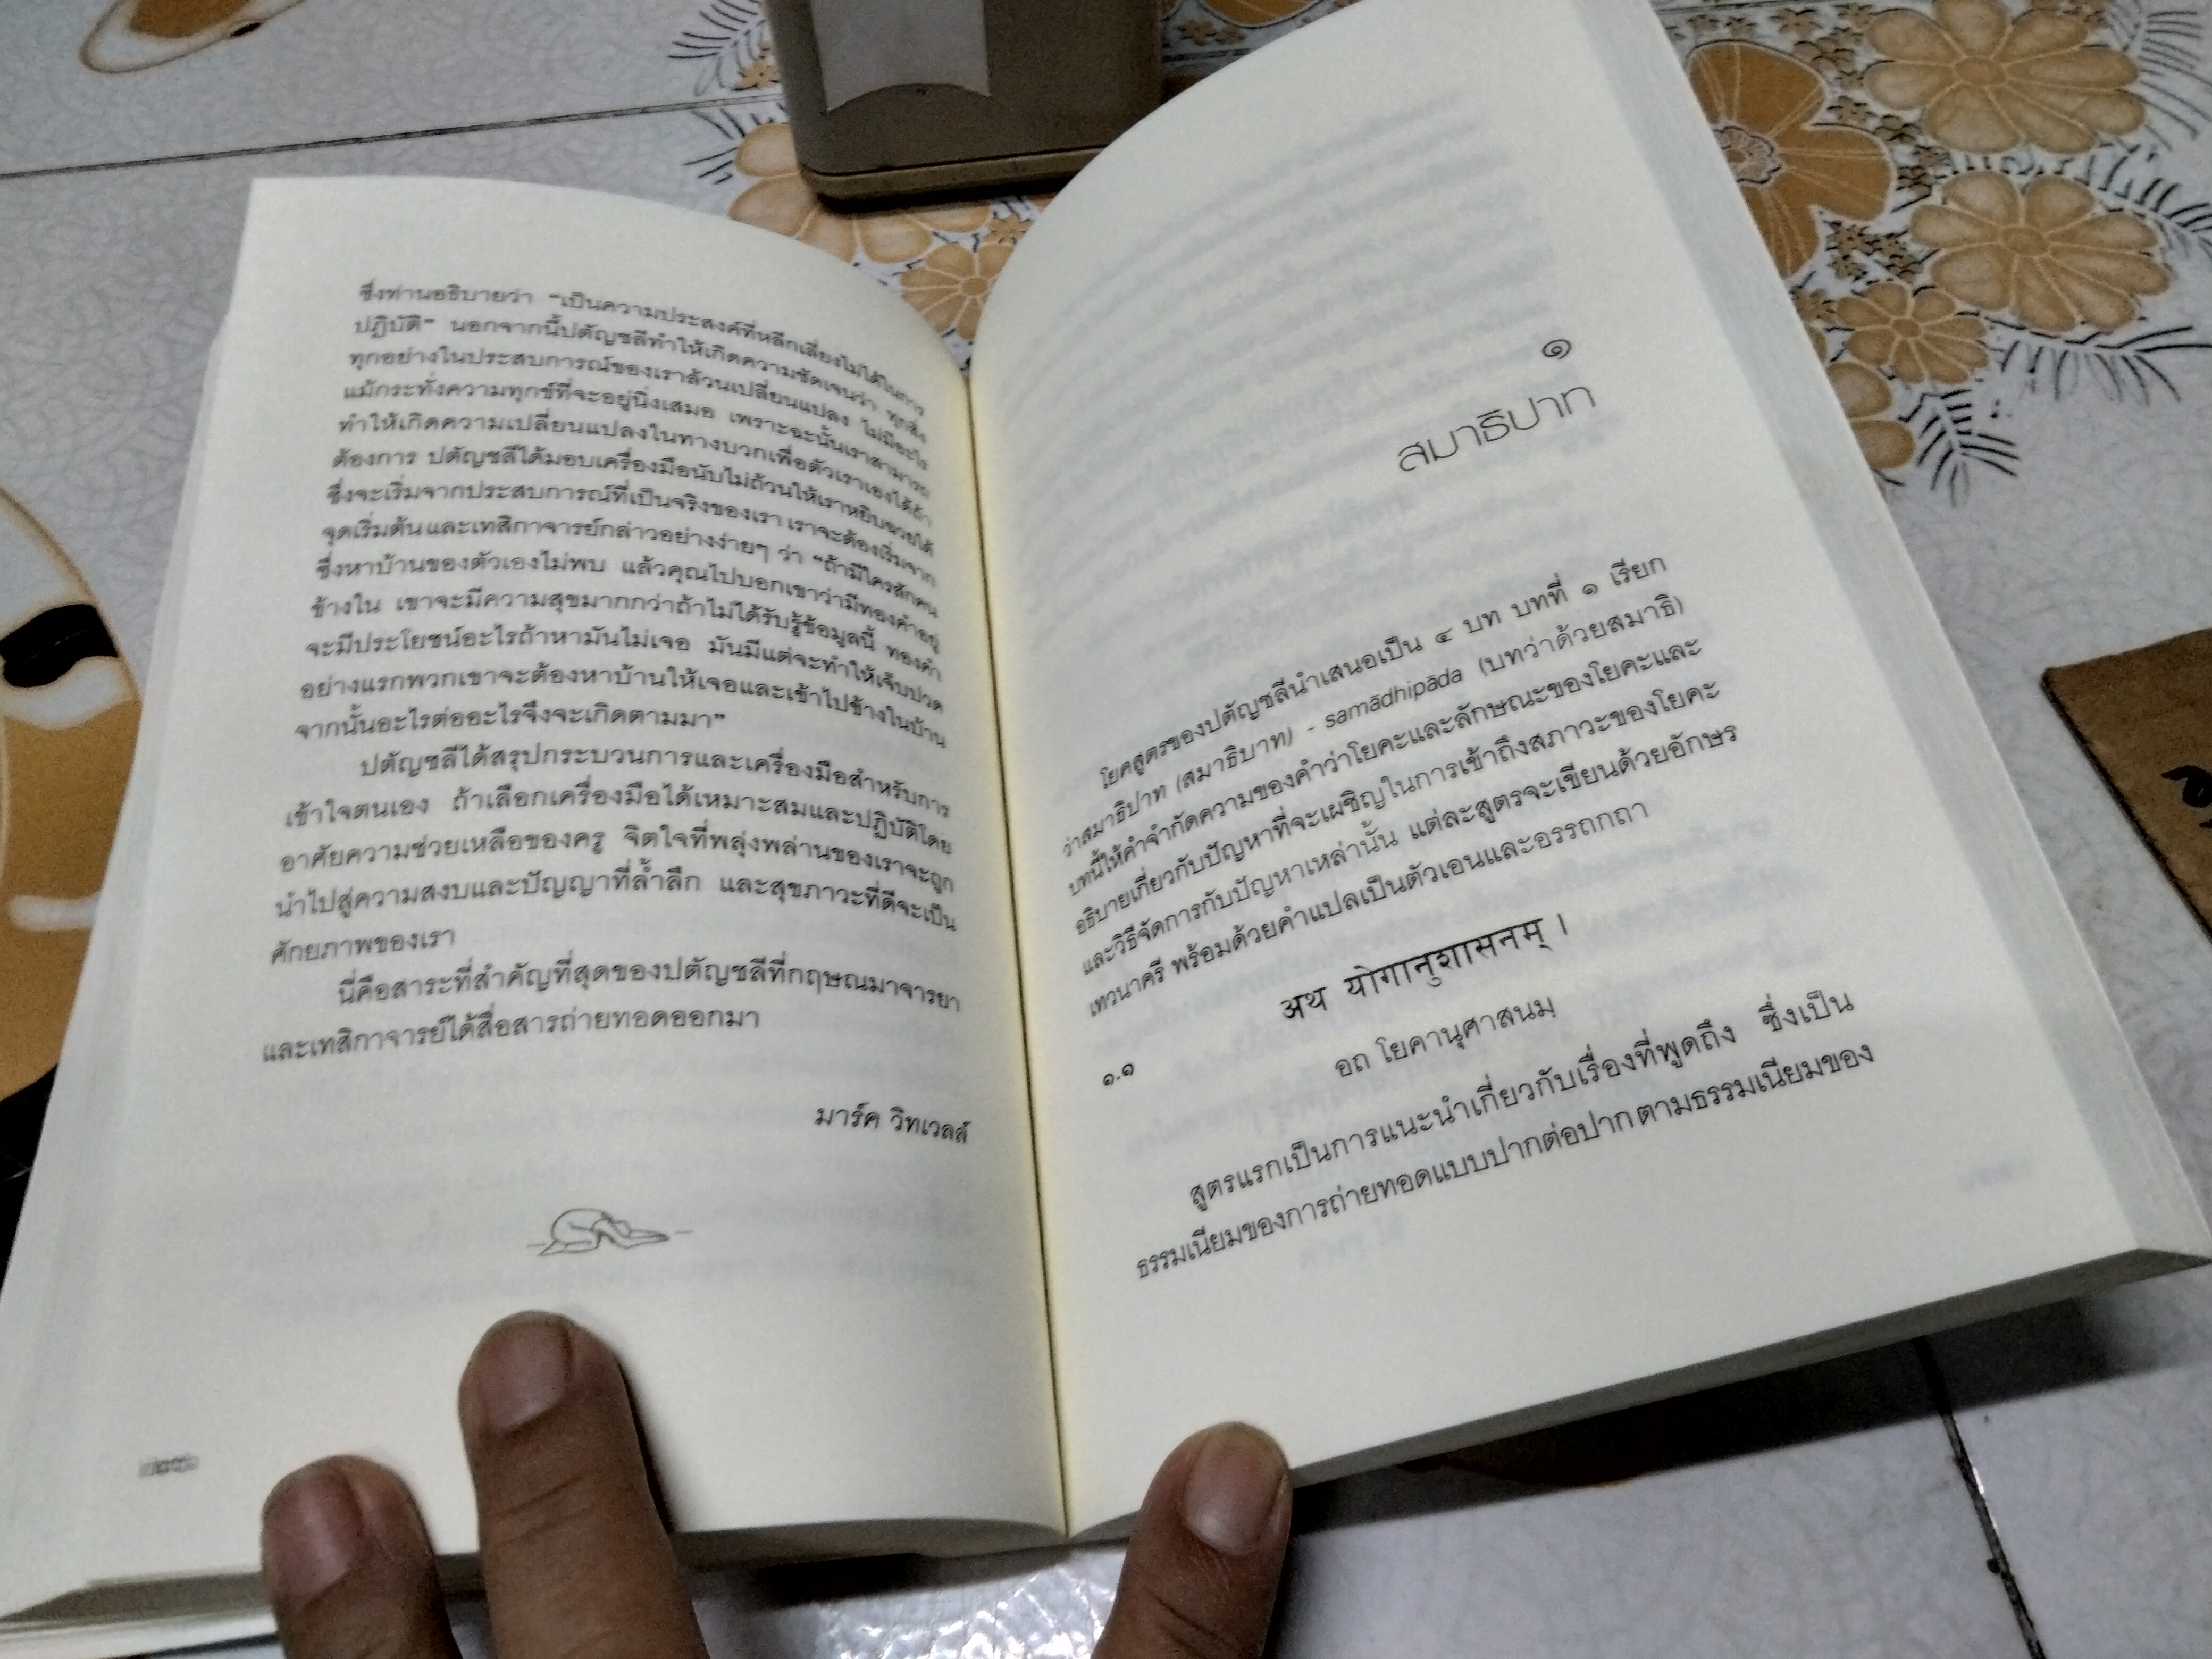 ซึ่งท่านอธิบายว่า "เป็นความประสงค์ที่หลีกเลี่ยงไม่ได้ในการ
ปฏิบัติ" นอกจากนี้ปตัญชลีทำให้เกิดความชัดเจนว่า ทุกสิ่ง
ทุกอย่างในประสบการณ์ของเราล้วนเปลี่ยนแปลง ไม่มีอะไร
แม้กระทั่งความทุกข์ที่จะอยู่นิ่งเสมอ เพราะฉะนั้นเราสามารถ
ทำให้เกิดความเปลี่ยนแปลงในทางบวกเพื่อตัวเราเองได้ถ้า
ต้องการ ปตัญชลีได้มอบเครื่องมือนับไม่ถ้วนให้เราหยิบฉวยได้
ซึ่งจะเริ่มจากประสบการณ์ที่เป็นจริงของเรา เราจะต้องเริ่มจาก
จุดเริ่มต้นและเทสิกาจารย์กล่าวอย่างง่ายๆ ว่า "ถ้ามีใครสักคน
ซึ่งหาบ้านของตัวเองไม่พบ แล้วคุณไปบอกเขาว่ามีทองคำอยู่
ข้างใน เขาจะมีความสุขมากกว่าถ้าไม่ได้รับรู้ข้อมูลนี้ ทองคำ
จะมีประโยชน์อะไรถ้าหามันไม่เจอ มันมีแต่จะทำให้เจ็บปวด
อย่างแรกพวกเขาจะต้องหาบ้านให้เจอและเข้าไปข้างในบ้าน
จากนั้นอะไรต่ออะไรจึงจะเกิดตามมา"
ปตัญชลีได้สรุปกระบวนการและเครื่องมือสำหรับการ
เข้าใจตนเอง ถ้าเลือกเครื่องมือได้เหมาะสมและปฏิบัติโดย
อาศัยความช่วยเหลือของครู จิตใจที่พลุ่งพล่านของเราจะถูก
นำไปสู่ความสงบและปัญญาที่ล้ำลึก และสุขภาวะที่ดีจะเป็น
ศักยภาพของเรา
นี่คือสาระที่สำคัญที่สุดของปตัญชลีที่กฤษณมาจารยา
และเทสิกาจารย์ได้สื่อสารถ่ายทอดออกมา
มาร์ค วิทเวลล์
๑
สมาธิปาท
โยคสูตรของปตัญชลีนำเสนอเป็น ๔ บท บทที่ ๑ เรียก
ว่าสมาธิปาท (สมาธิบาท) - samādhipāda (บทว่าด้วยสมาธิ)
บทนี้ให้คำจำกัดความของคำว่าโยคะและลักษณะของโยคะและ
อธิบายเกี่ยวกับปัญหาที่จะเผชิญในการเข้าถึงสภาวะของโยคะ
และวิธีจัดการกับปัญหาเหล่านั้น แต่ละสูตรจะเขียนด้วยอักษร
เทวนาครี พร้อมด้วยคำแปลเป็นตัวเอนและอรรถกถา
अथ योगानुशासनम् ।
๑.๑ อถ โยคานุศาสนมฺ
สูตรแรกเป็นการแนะนำเกี่ยวกับเรื่องที่พูดถึง ซึ่งเป็น
ธรรมเนียมของการถ่ายทอดแบบปากต่อปากตามธรรมเนียมของ